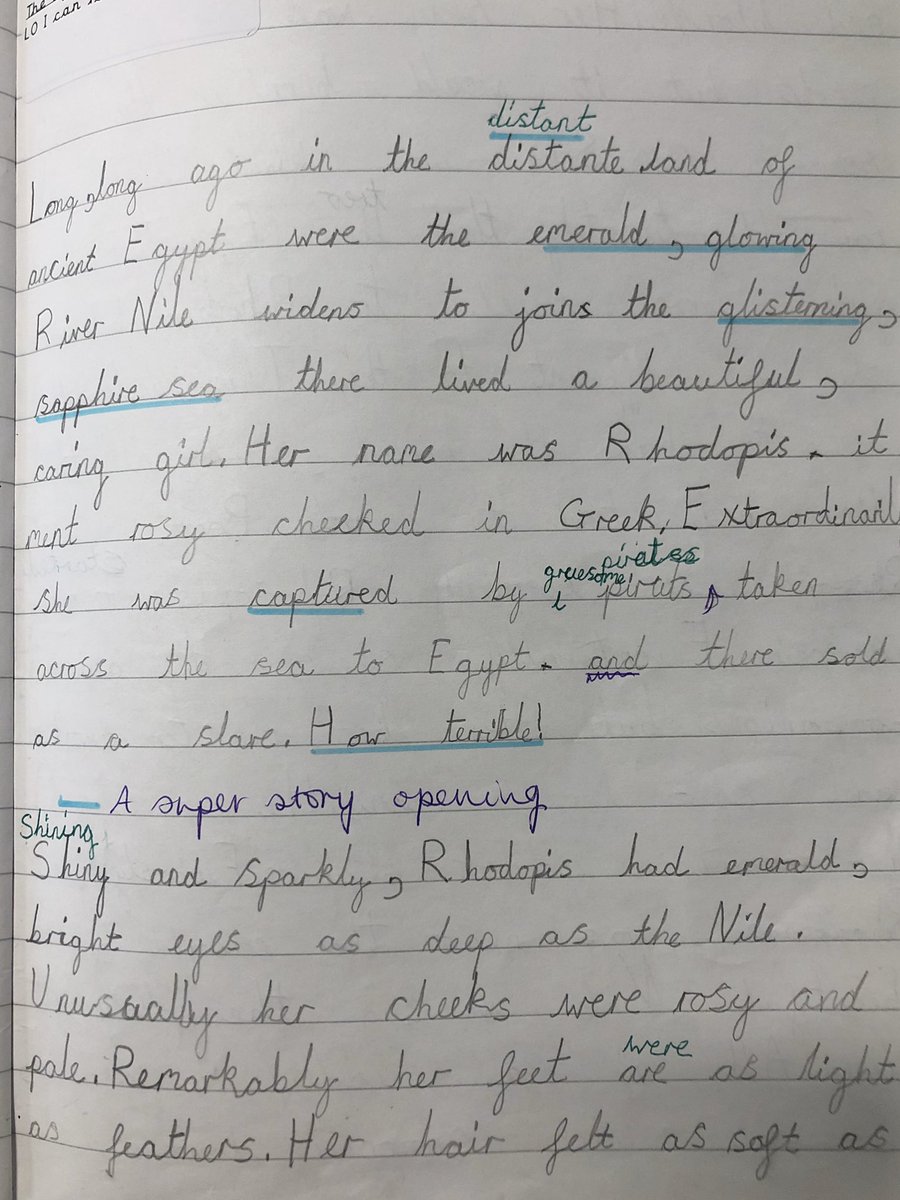 The
LO I can
distant
Long, long ago in the distante land of
ancient Egypt were the emerald, glowing
River Nile widens to joins the glisterning,
sapphire sea there lived a beautiful,
caring girl. Her name was Rhodopis. it
ment rosy cheeked in Greek, Extraordinaril
gruesome pirates
she was captured by pirats, taken
across the sea to Egypt. and there sold
as a slave. How terrible!
A super story opening
Shining
Shiny and sparkly, Rhodopis had emerald,
bright eyes as deep as the Nile.
Unusually her cheeks were rosy and
were
pale. Remarkably her feet are as light
as feathers. Her hair felt as soft as